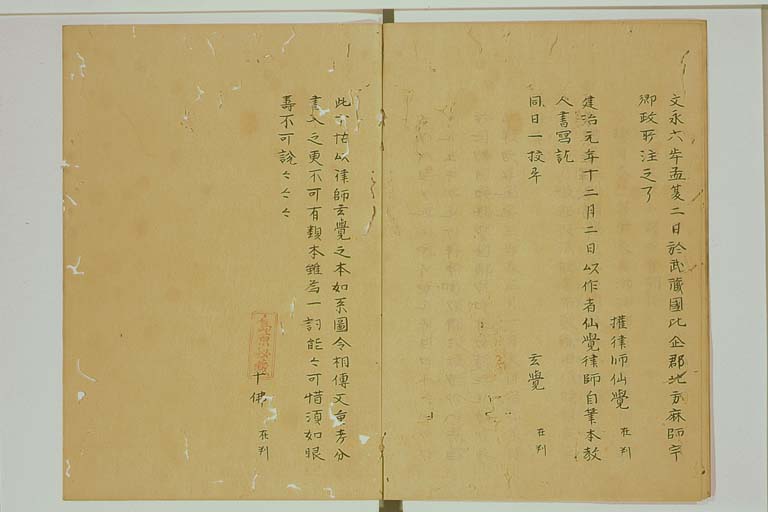 文永六年孟夏二日於武蔵國比企郡北方麻師宇
郷政所注之了
權律師仙覺 在判
建治元年十二月二日以作者仙覺律師自筆本教
人書寫訖
同日一挍畢
玄覺 在判
此下帖以律師玄覺之本如系圖令相傳文童孝分
書入之更不可有類本雖為一訶能〻可惜須如眼
壽不可説〻〻〻
十佛 在判